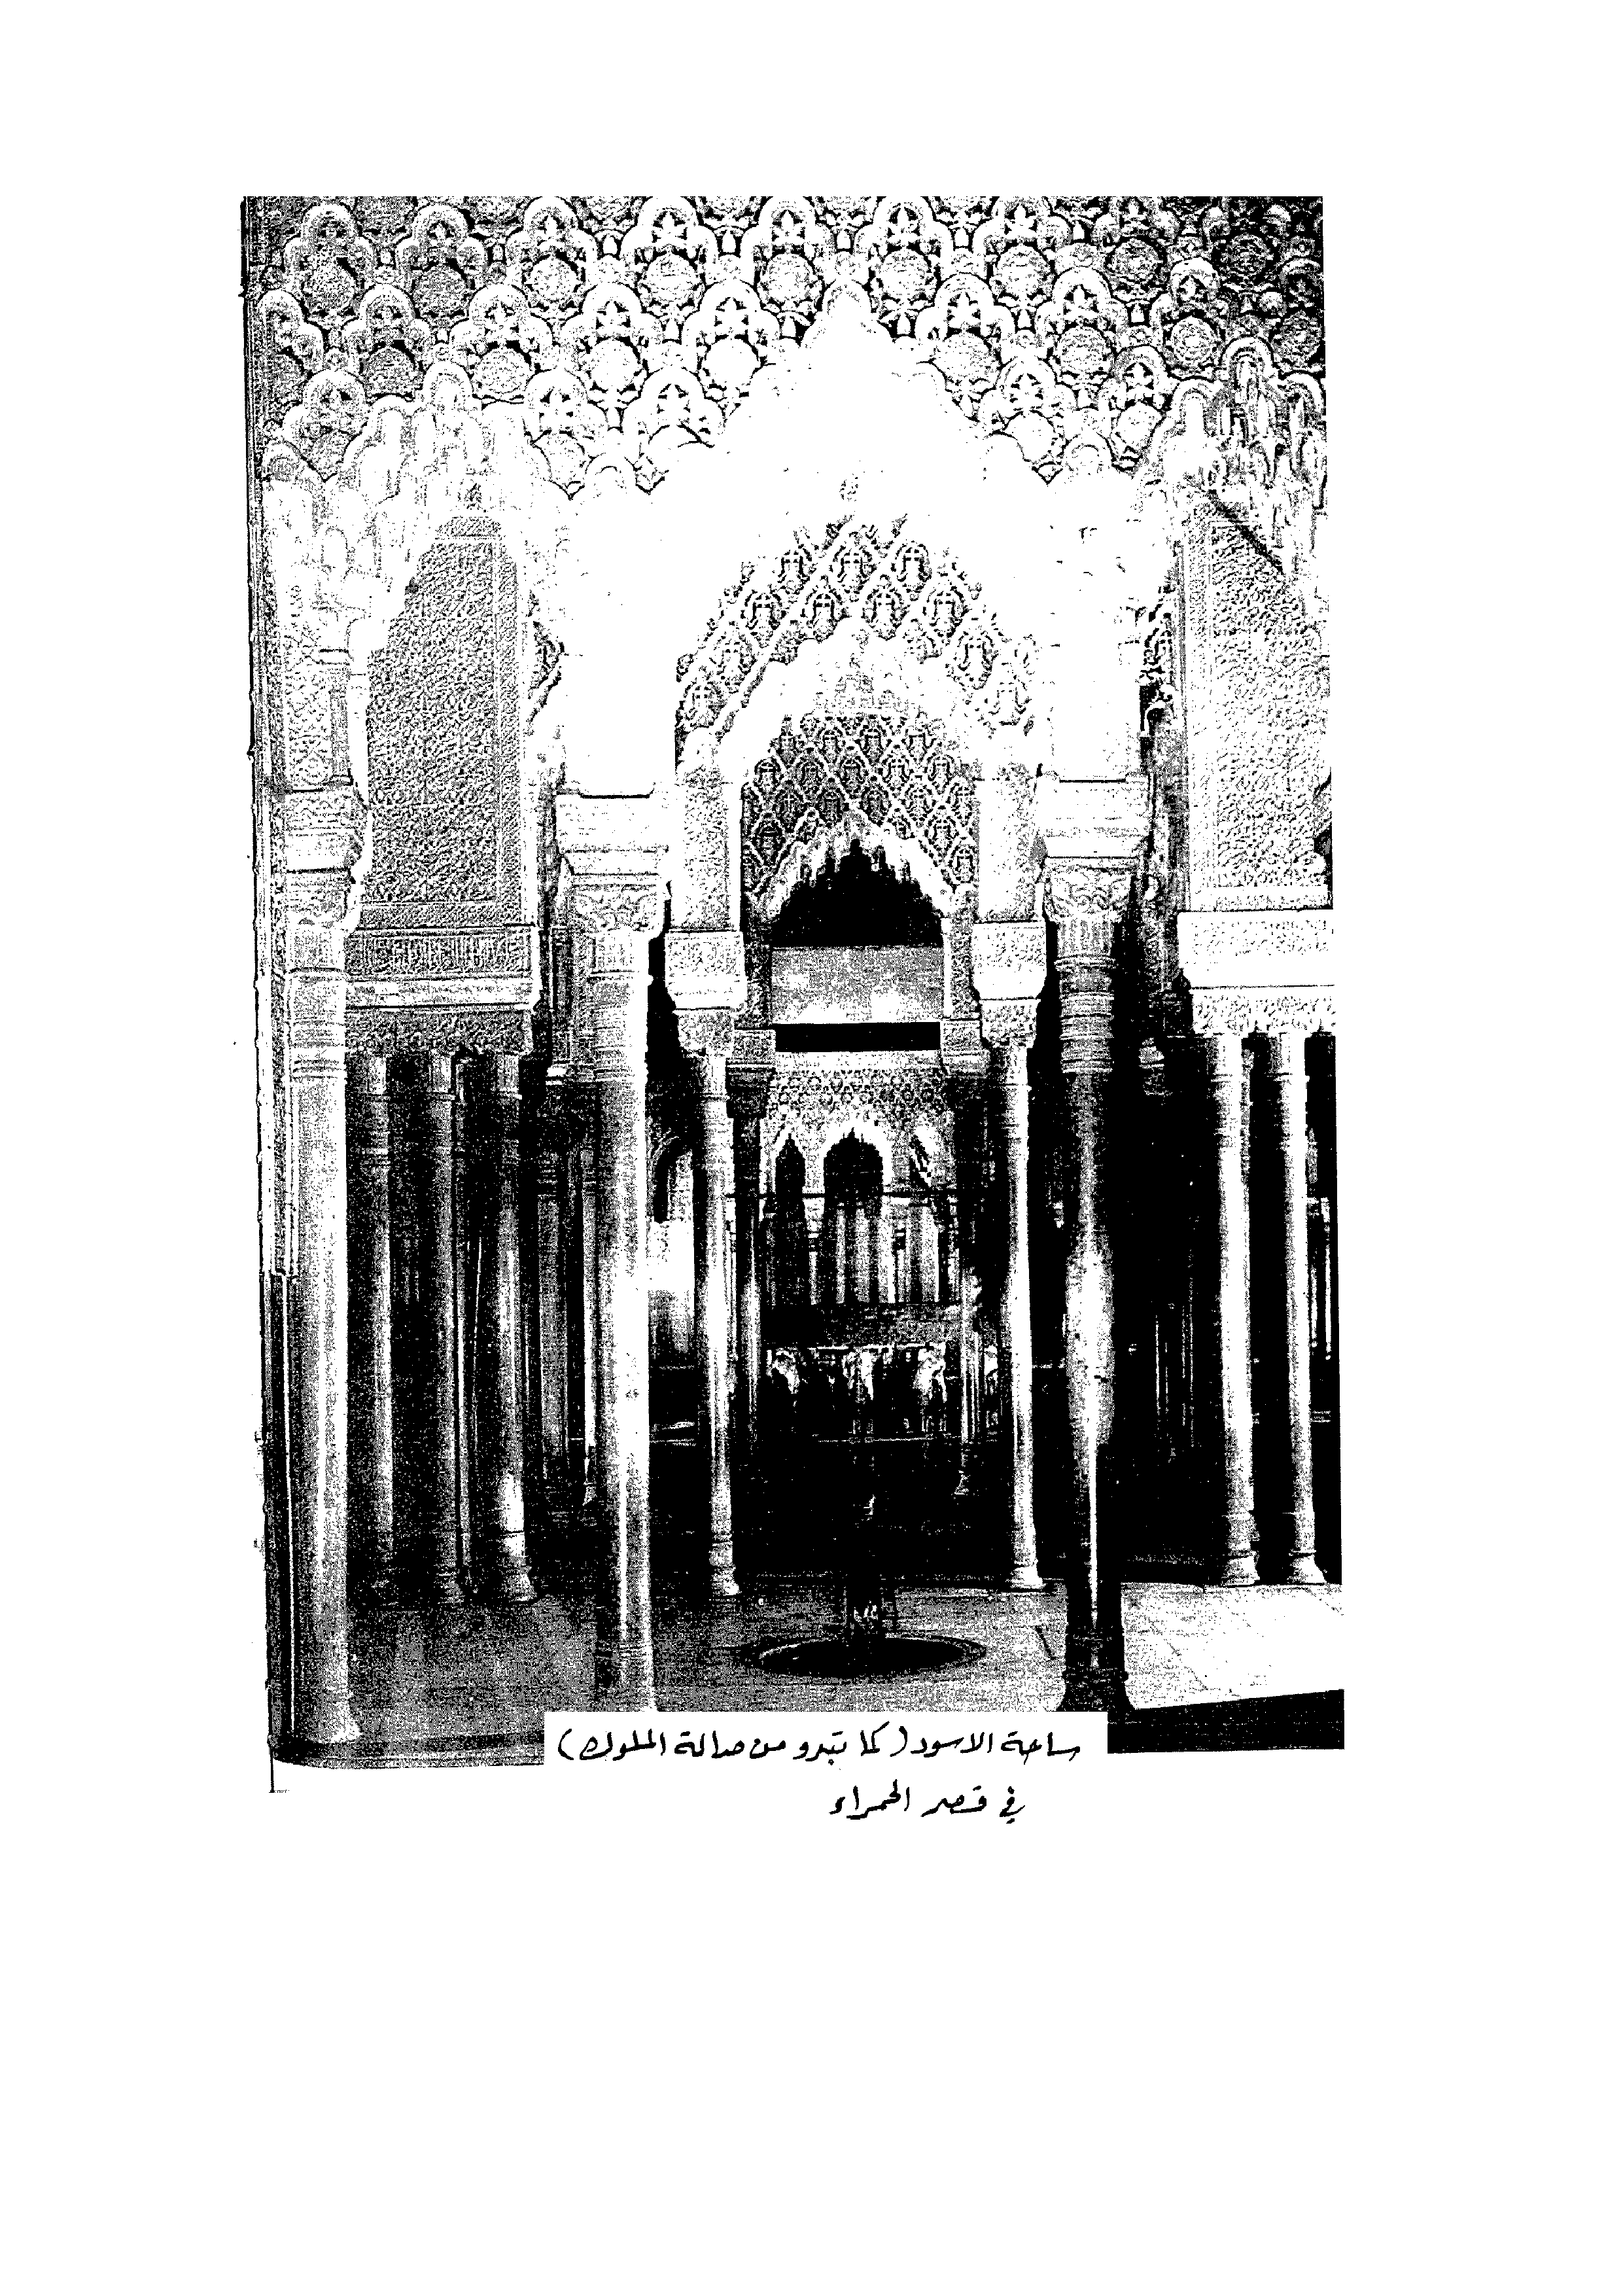 ساحة الاسود (كما تبدو من صالة الملوك)
في قصر الحمراء